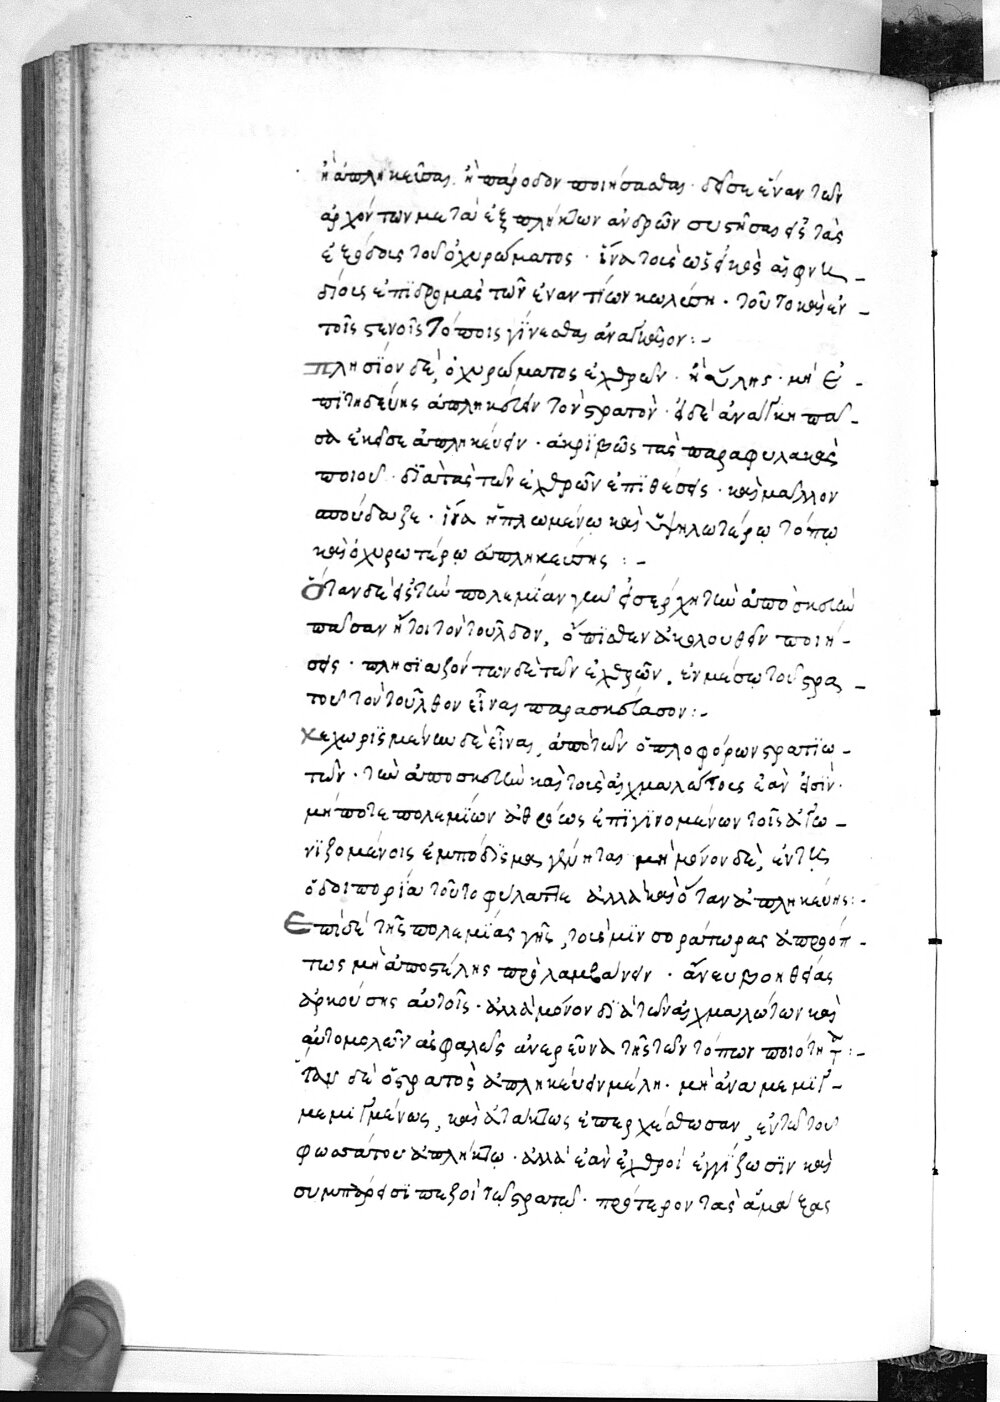 ἢ ἀπληκεῦσαι. ἢ πάροδον ποιήσασθαι· δεῖ σε ἕναν τῶν
ἀρχόντων μετὰ ἐξπλήκτων ἀνδρῶν συστῆσαι εἰς τὰς
ἐξόδοις τοῦ ὀχυρώματος· ἵνα τοῖς ὡς εἰκὸς αἰφνι_
δίοις ἐπιδρομὰς τῶν ἐναντίων κωλύση· τοῦτο καὶ ἐν _
τοῖς στενοῖς τόποις γίνεσθαι ἀναγκαῖον:–
πλησίον δὲ ὀχυρώματος ἐχθρῶν· ἢ ὕλης· μὴ ἐ _
πιτηδεύης ἀπληκεύειν τὸν στρατόν· εἰ δὲ ἀνάγκη πα _
σα ἐκεῖσε ἀπληκεύειν· ἀκριβῶς τὰς παραφυλακὰς
ποιοῦ· διὰ τὰς τῶν ἐχθρῶν ἐπιθέσεις· καὶ μᾶλλον
σπούδαζε· ἵνα ἡπλωμένω καὶ ὑψηλωτέρω τόπω
καὶ ὀχυρωτέρω ἀπληκεύσης :–
ὅταν δὲ εἰς τὴν πολεμίαν γῆν εἰσέρχη τὴν ἀποσκευὴν
πᾶσαν ἤτοι τὸν τοῦλδον, ὄπισθεν ἀκολουθεῖν ποιή–
σεις· πλησιαζόντων δὲ τῶν ἐχθρῶν. ἐν μέσω τοῦ στρα _
τοῦ τὸν τοῦλδον εἶναι παρασκεύασον:–
κεχωρισμένην δὲ εἶναι, ἀπὸ τῶν ὁπλοφόρων στρατιω –
τῶν· τὴν ἀποσκευὴν καὶ τοὺς αἰχμαλώτους ἐὰν εἰσίν·
μήποτε πολεμίων ἀθρόως ἐπιγινομένων τοῖς ἀγω –
νιζομένοις ἐμπόδισμα γένηται μὴ μόνον δὲ, ἐν τῆ
ὁδοιπορία τοῦτο φύλαττε ἀλλὰ καὶ ὅταν ἀπληκεύης:–
Ἐπὶ δὲ τῆς πολεμίας γῆς, τοὺς μινσοράτωρας ἀπρόπ –
τως μὴ ἀποστέλης προλαμβάνειν· ἄνευ βοηθείας
ἀρκούσης αὐτοῖς· ἀλλὰ μόνον διὰ τῶν αἰχμαλώτων καὶ
αὐτομολῶν ἀσφαλεῖς ἀνερεύνα τῆς τῶν τόπων ποιότητ :–
Ὅταν δὲ ὁ στρατὸς ἀπληκεύειν μέλη· μὴ ἀναμεμιγ–
μεμιγμένως, καὶ ἀτάκτως ἐπερχέσθωσαν, ἐν τῶ τοῦ
φωσσάτου ἀπλήκτω· ἀλλ' ἐὰν ἐχθροί ἐγγίζωσϊν καὶ
συμπάρεισι πεζοὶ τῶ στρατῶ· πρότερον τὰς ἁμάξας